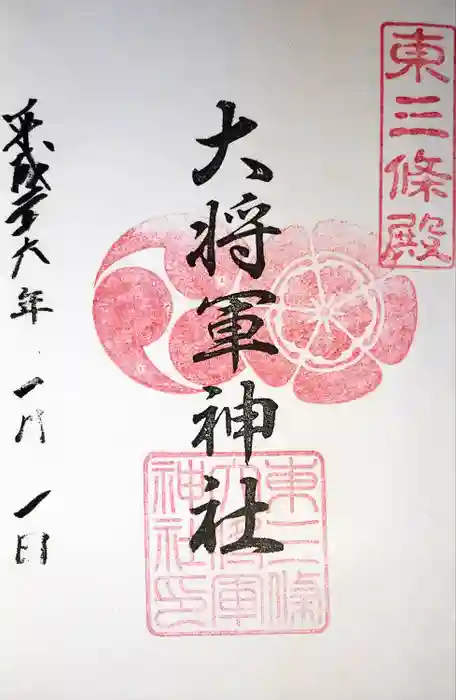 東三條殿
大将軍神社
東三條
大将軍
神社印
平成廿六年 一月 一日